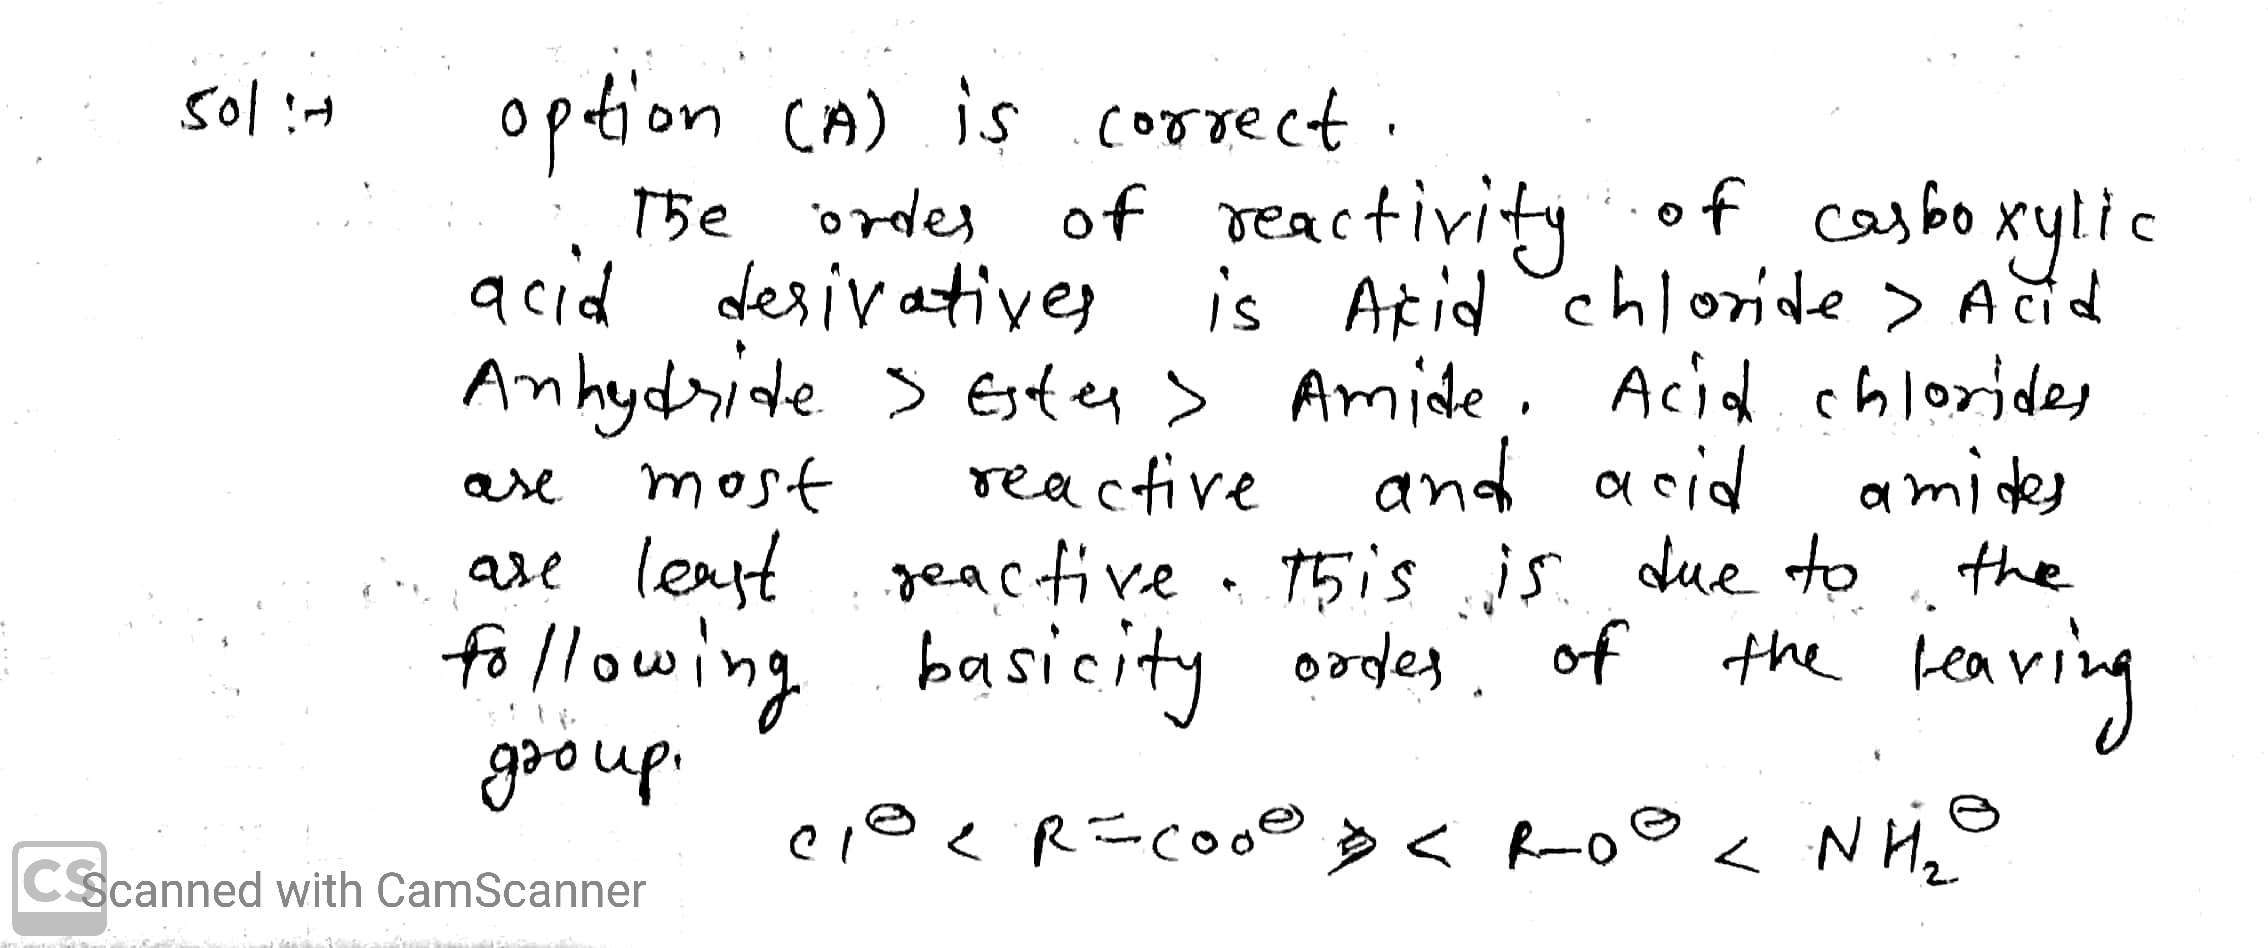 Sol :-
option (A) is correct.
The order of reactivity of carboxylic
acid derivatives is Acid chloride > Acid
Anhydride > Ester > Amide. Acid chlorides
are most reactive and acid amides
are least reactive. This is due to the
following basicity order of the leaving
group.
Cl⊖ < R-COO⊖ < R-O⊖ < NH₂⊖
CS Scanned with CamScanner